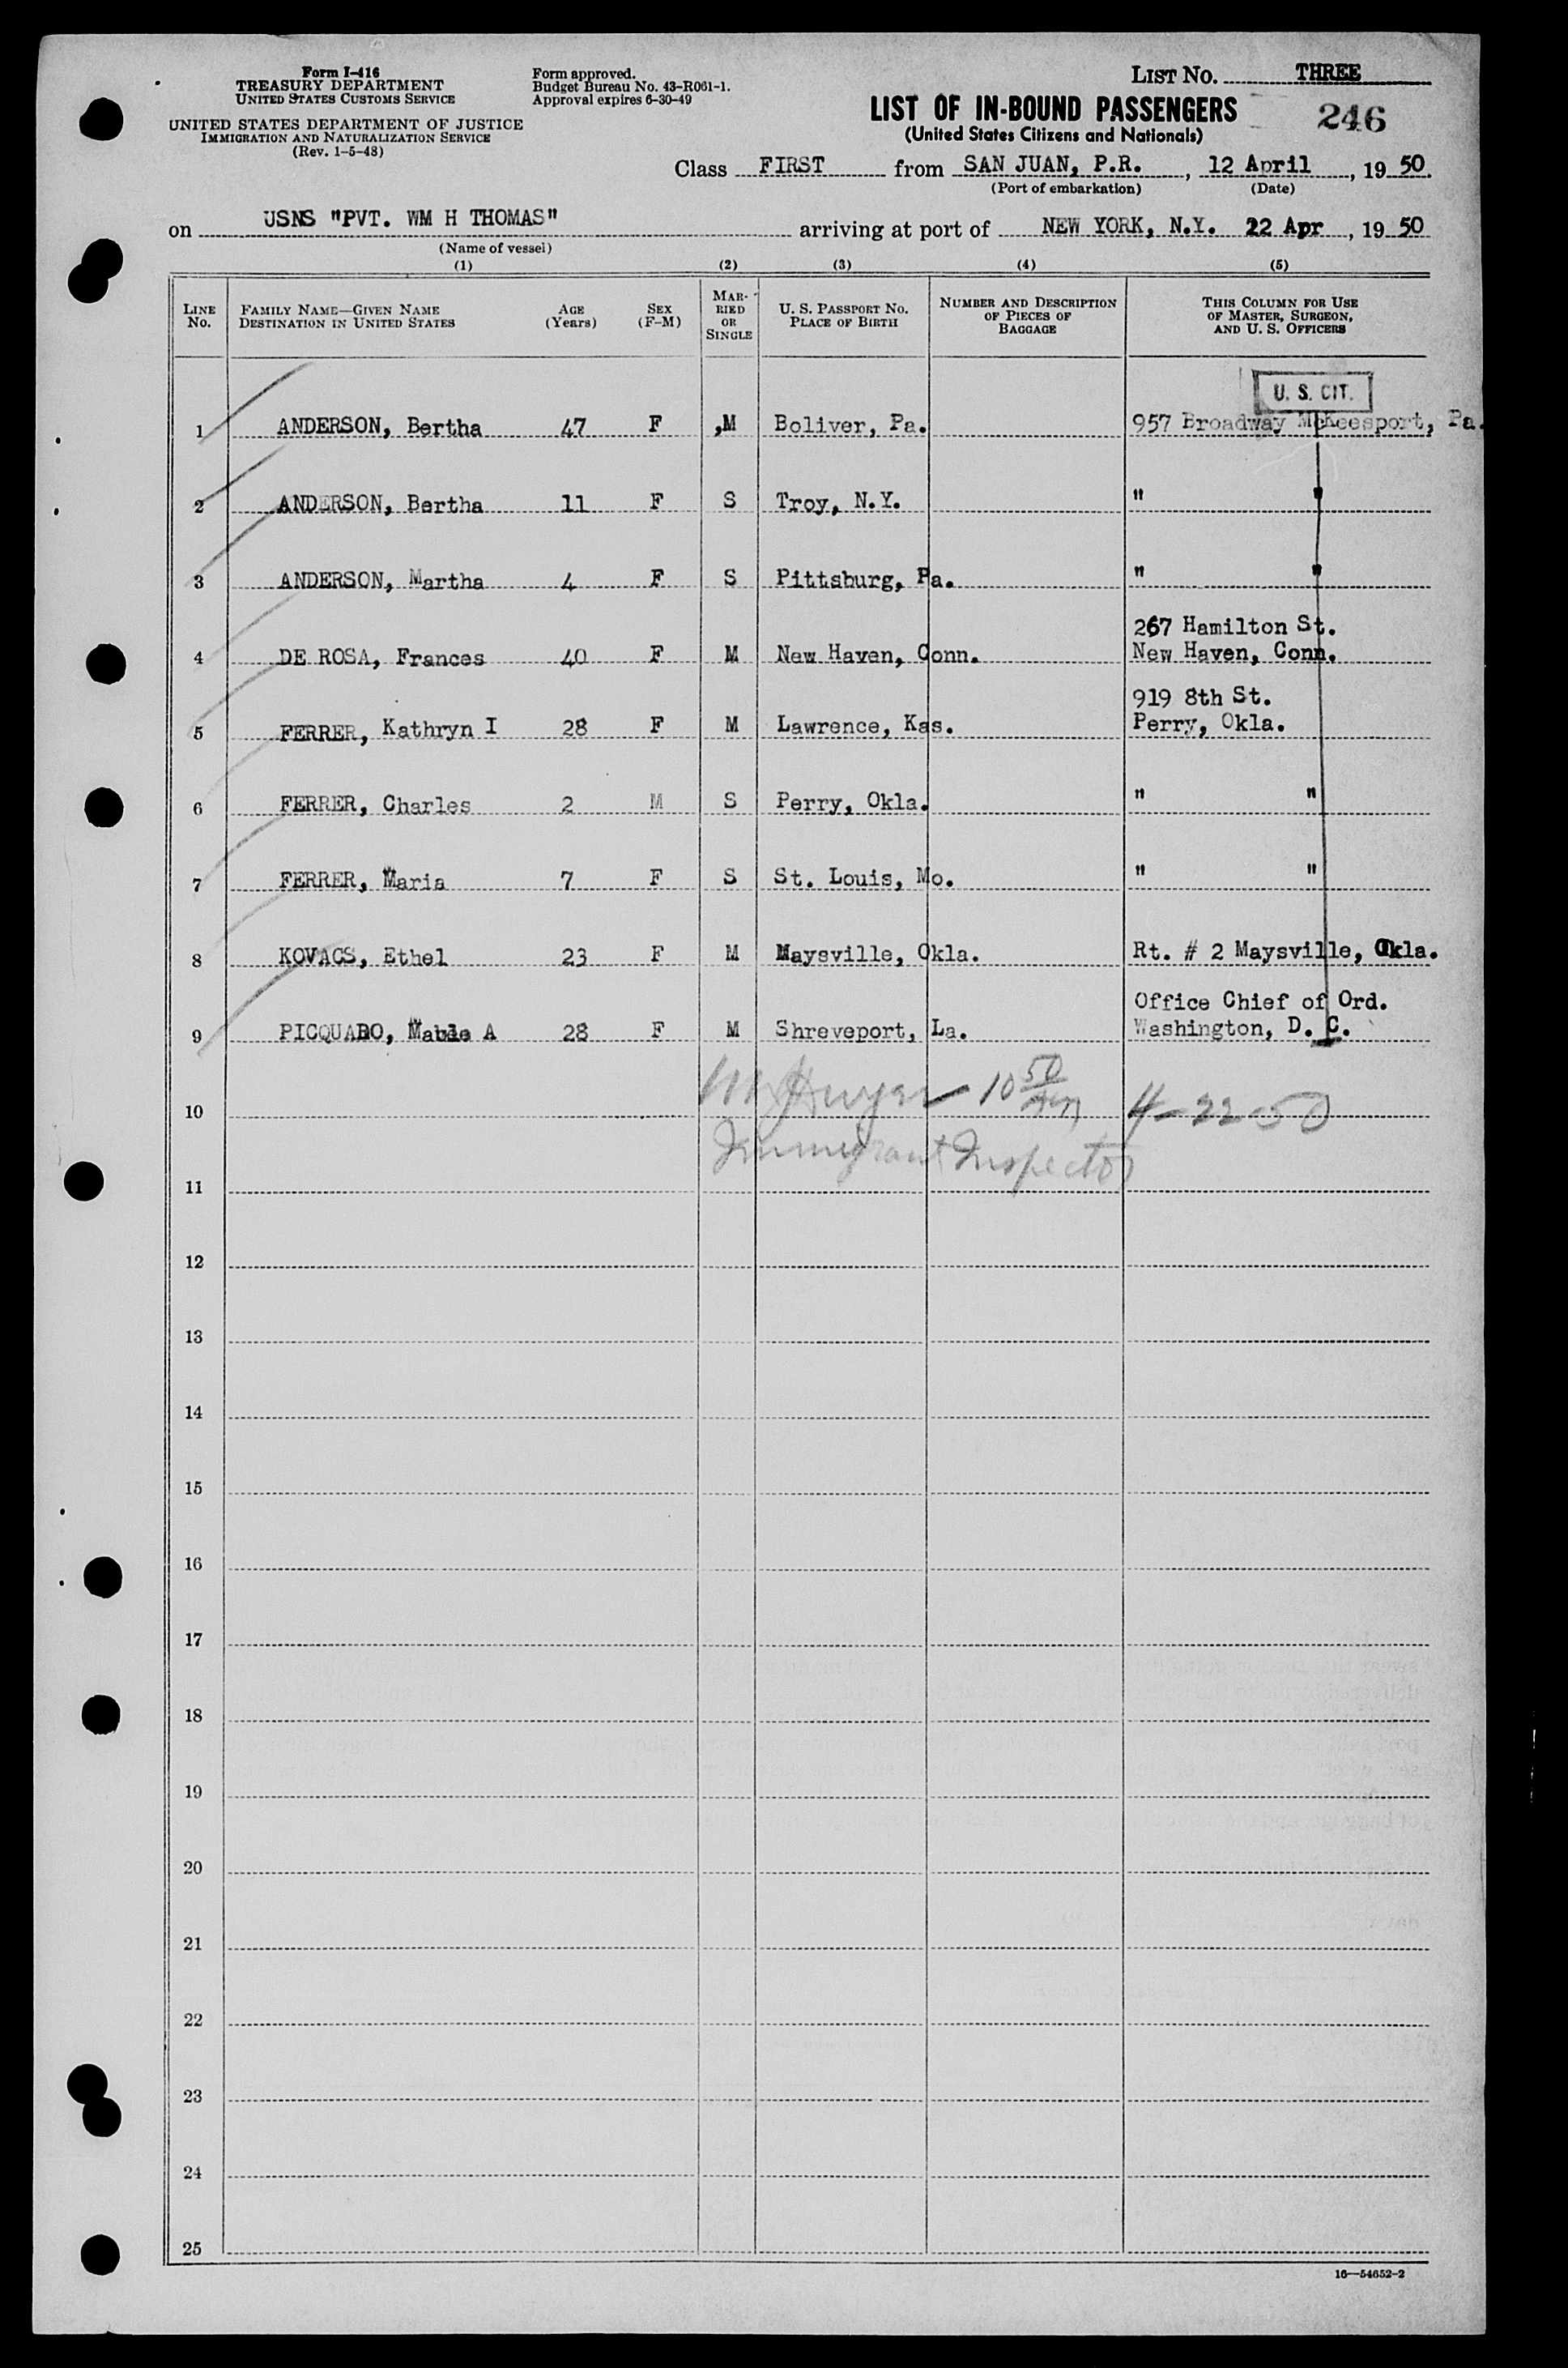 Form I-416
TREASURY DEPARTMENT
UNITED STATES CUSTOMS SERVICE
UNITED STATES DEPARTMENT OF JUSTICE
IMMIGRATION AND NATURALIZATION SERVICE
(Rev. 1-5-48)
Form approved.
Budget Bureau No. 43-R061-1.
Approval expires 6-30-49
LIST NO. THREE
LIST OF IN-BOUND PASSENGERS
(United States Citizens and Nationals)
246
Class FIRST from SAN JUAN, P.R., 12 April, 19 50.
(Port of embarkation) (Date)
on USNS "PVT. WM H THOMAS" arriving at port of NEW YORK, N.Y. 22 Apr, 19 50
(Name of vessel)
(1) (2) (3) (4) (5)
LINE NO.
FAMILY NAME—GIVEN NAME
DESTINATION IN UNITED STATES
AGE
(Years)
SEX
(F-M)
MARRIED OR SINGLE
U. S. PASSPORT NO.
PLACE OF BIRTH
NUMBER AND DESCRIPTION
OF PIECES OF
BAGGAGE
THIS COLUMN FOR USE
OF MASTER, SURGEON,
AND U. S. OFFICERS
U. S. CIT.
1 ANDERSON, Bertha 47 F ,M Boliver, Pa. 957 Broadway McKeesport, Pa.
2 ANDERSON, Bertha 11 F S Troy, N.Y. " "
3 ANDERSON, Martha 4 F S Pittsburg, Pa. " "
267 Hamilton St.
4 DE ROSA, Frances 40 F M New Haven, Conn. New Haven, Conn.
919 8th St.
5 FERRER, Kathryn I 28 F M Lawrence, Kas. Perry, Okla.
6 FERRER, Charles 2 M S Perry, Okla. " "
7 FERRER, Maria 7 F S St. Louis, Mo. " "
8 KOVACS, Ethel 23 F M Maysville, Okla. Rt. # 2 Maysville, Okla.
Office Chief of Ord.
9 PICQUADO, Mable A 28 F M Shreveport, La. Washington, D. C.
10 50 4-22-50
10
Immigrant Inspector
11
12
13
14
15
16
17
18
19
20
21
22
23
24
25
16—54652-2